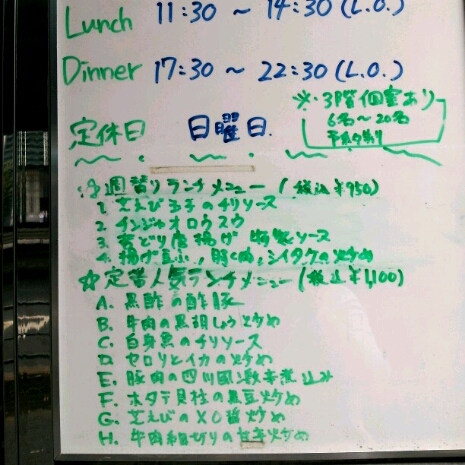 Lunch 11:30 ~ 14:30 (L.O.)
Dinner 17:30 ~ 22:30 (L.O.)
※・3階個室あり
6名~20名
予約あり
定休日 日曜日.
☆週替りランチメニュー (税込¥950)
1. 芝えび玉子のチリソース
2. チンジャオロウスウ
3. 若どり唐揚げ 特製ソース
4. 揚げ豆ふ、豚肉、シイタケの炒め
☆定番人気ランチメニュー (税込¥1,100)
A. 黒酢の酢豚
B. 牛肉の黒胡しょう炒め
C. 白身魚のチリソース
D. セロリとイカの炒め
E. 豚肉の四川風激辛煮込み
F. ホタテ貝柱の黒豆炒め
G. 芝えびのXO醤炒め
H. 牛肉細切りの炒め